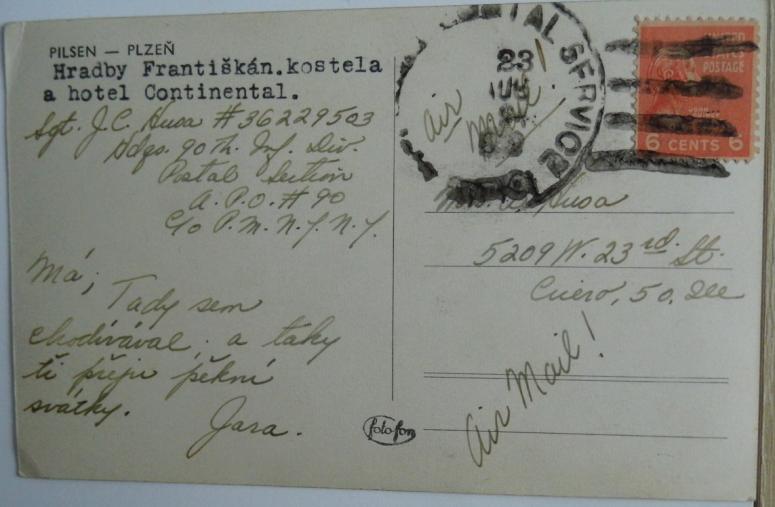 PILSEN — PLZEŇ
Hradby Františkán.kostela
a hotel Continental.
Sgt. J.C. Husa #36229503
Hdqs. 90th. Inf. Div.
Postal Section
A.P.O. #90
C/o P.M. N.Y. N.Y.
Má;
Tady sem
chodívával a taky
ti přeju pěkní
svátky.
Jara.
fotofon
POSTAL SERVICE
23
air
mail!
UNITED
STATES
POSTAGE
6 CENTS 6
Husa
5209 W. 23rd. St.
Cicero, 50. Ill
Air Mail!